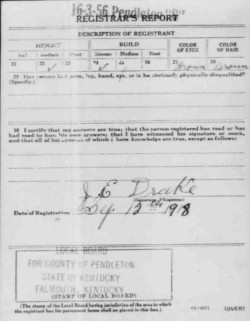 16-3-56 Pendleton
REGISTRAR'S REPORT
DESCRIPTION OF REGISTRANT
HEIGHT BUILD COLOR OF EYES COLOR OF HAIR
Tall Medium Short Slender Medium Stout
21 22 23 24 25 26 27 28
✓ ✓ Brown Brown
29 Has person lost arm, leg, hand, eye, or is he obviously physically disqualified?
(Specify.)
30 I certify that my answers are true; that the person registered has read or has
had read to him his own answers; that I have witnessed his signature or mark,
and that all of his answers of which I have knowledge are true, except as follows:
Drake
Date of Registration Sep 12th 1918
LOCAL BOARD
FOR COUNTY OF PENDLETON
STATE OF KENTUCKY
FALMOUTH, KENTUCKY
(STAMP OF LOCAL BOARD)
(The stamp of the Local Board having jurisdiction of the area in which
the registrant has his permanent home shall be placed in this box.)
(OVER)